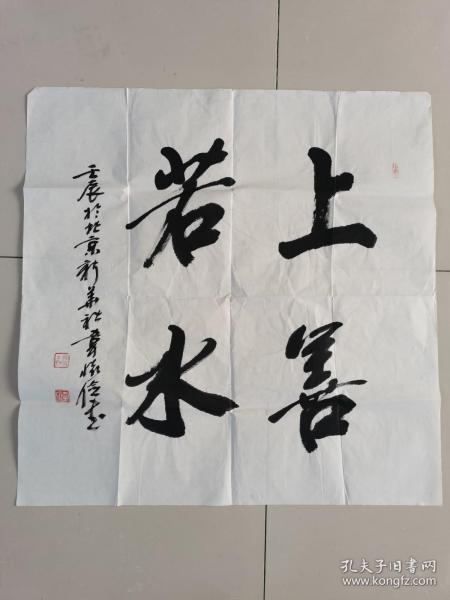 上善
若水
壬辰于北京新华社
孔夫子旧书网
www.kongfz.com